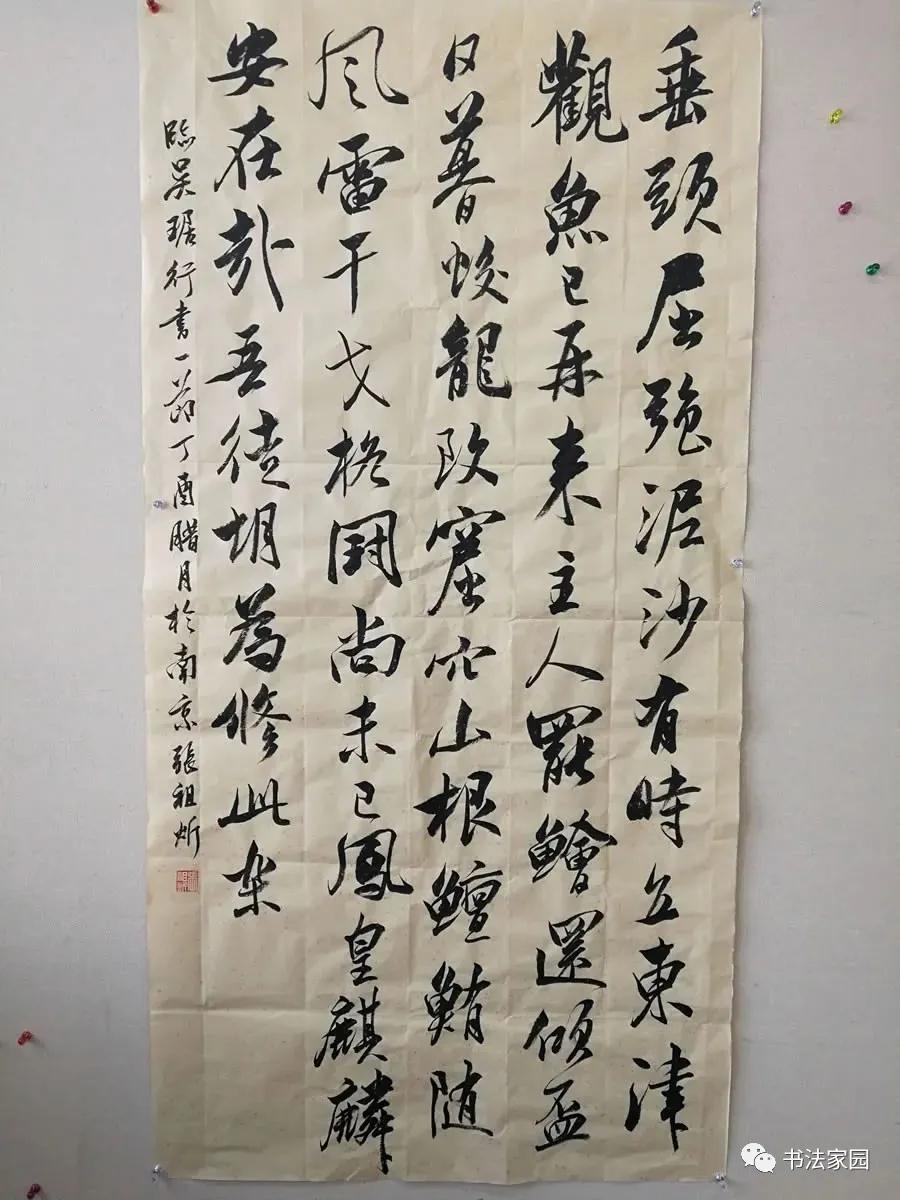 垂頭屈強泥沙有時立東津
觀魚已再来主人罷鱠還傾盃
日暮蛟龍改窟穴山根鱣鮪随
風雷干戈格鬪尚未已鳳皇麒麟
安在哉吾徒胡為縱此樂
臨吳琚行書一節丁酉腊月於南京張祖炘
书法家园